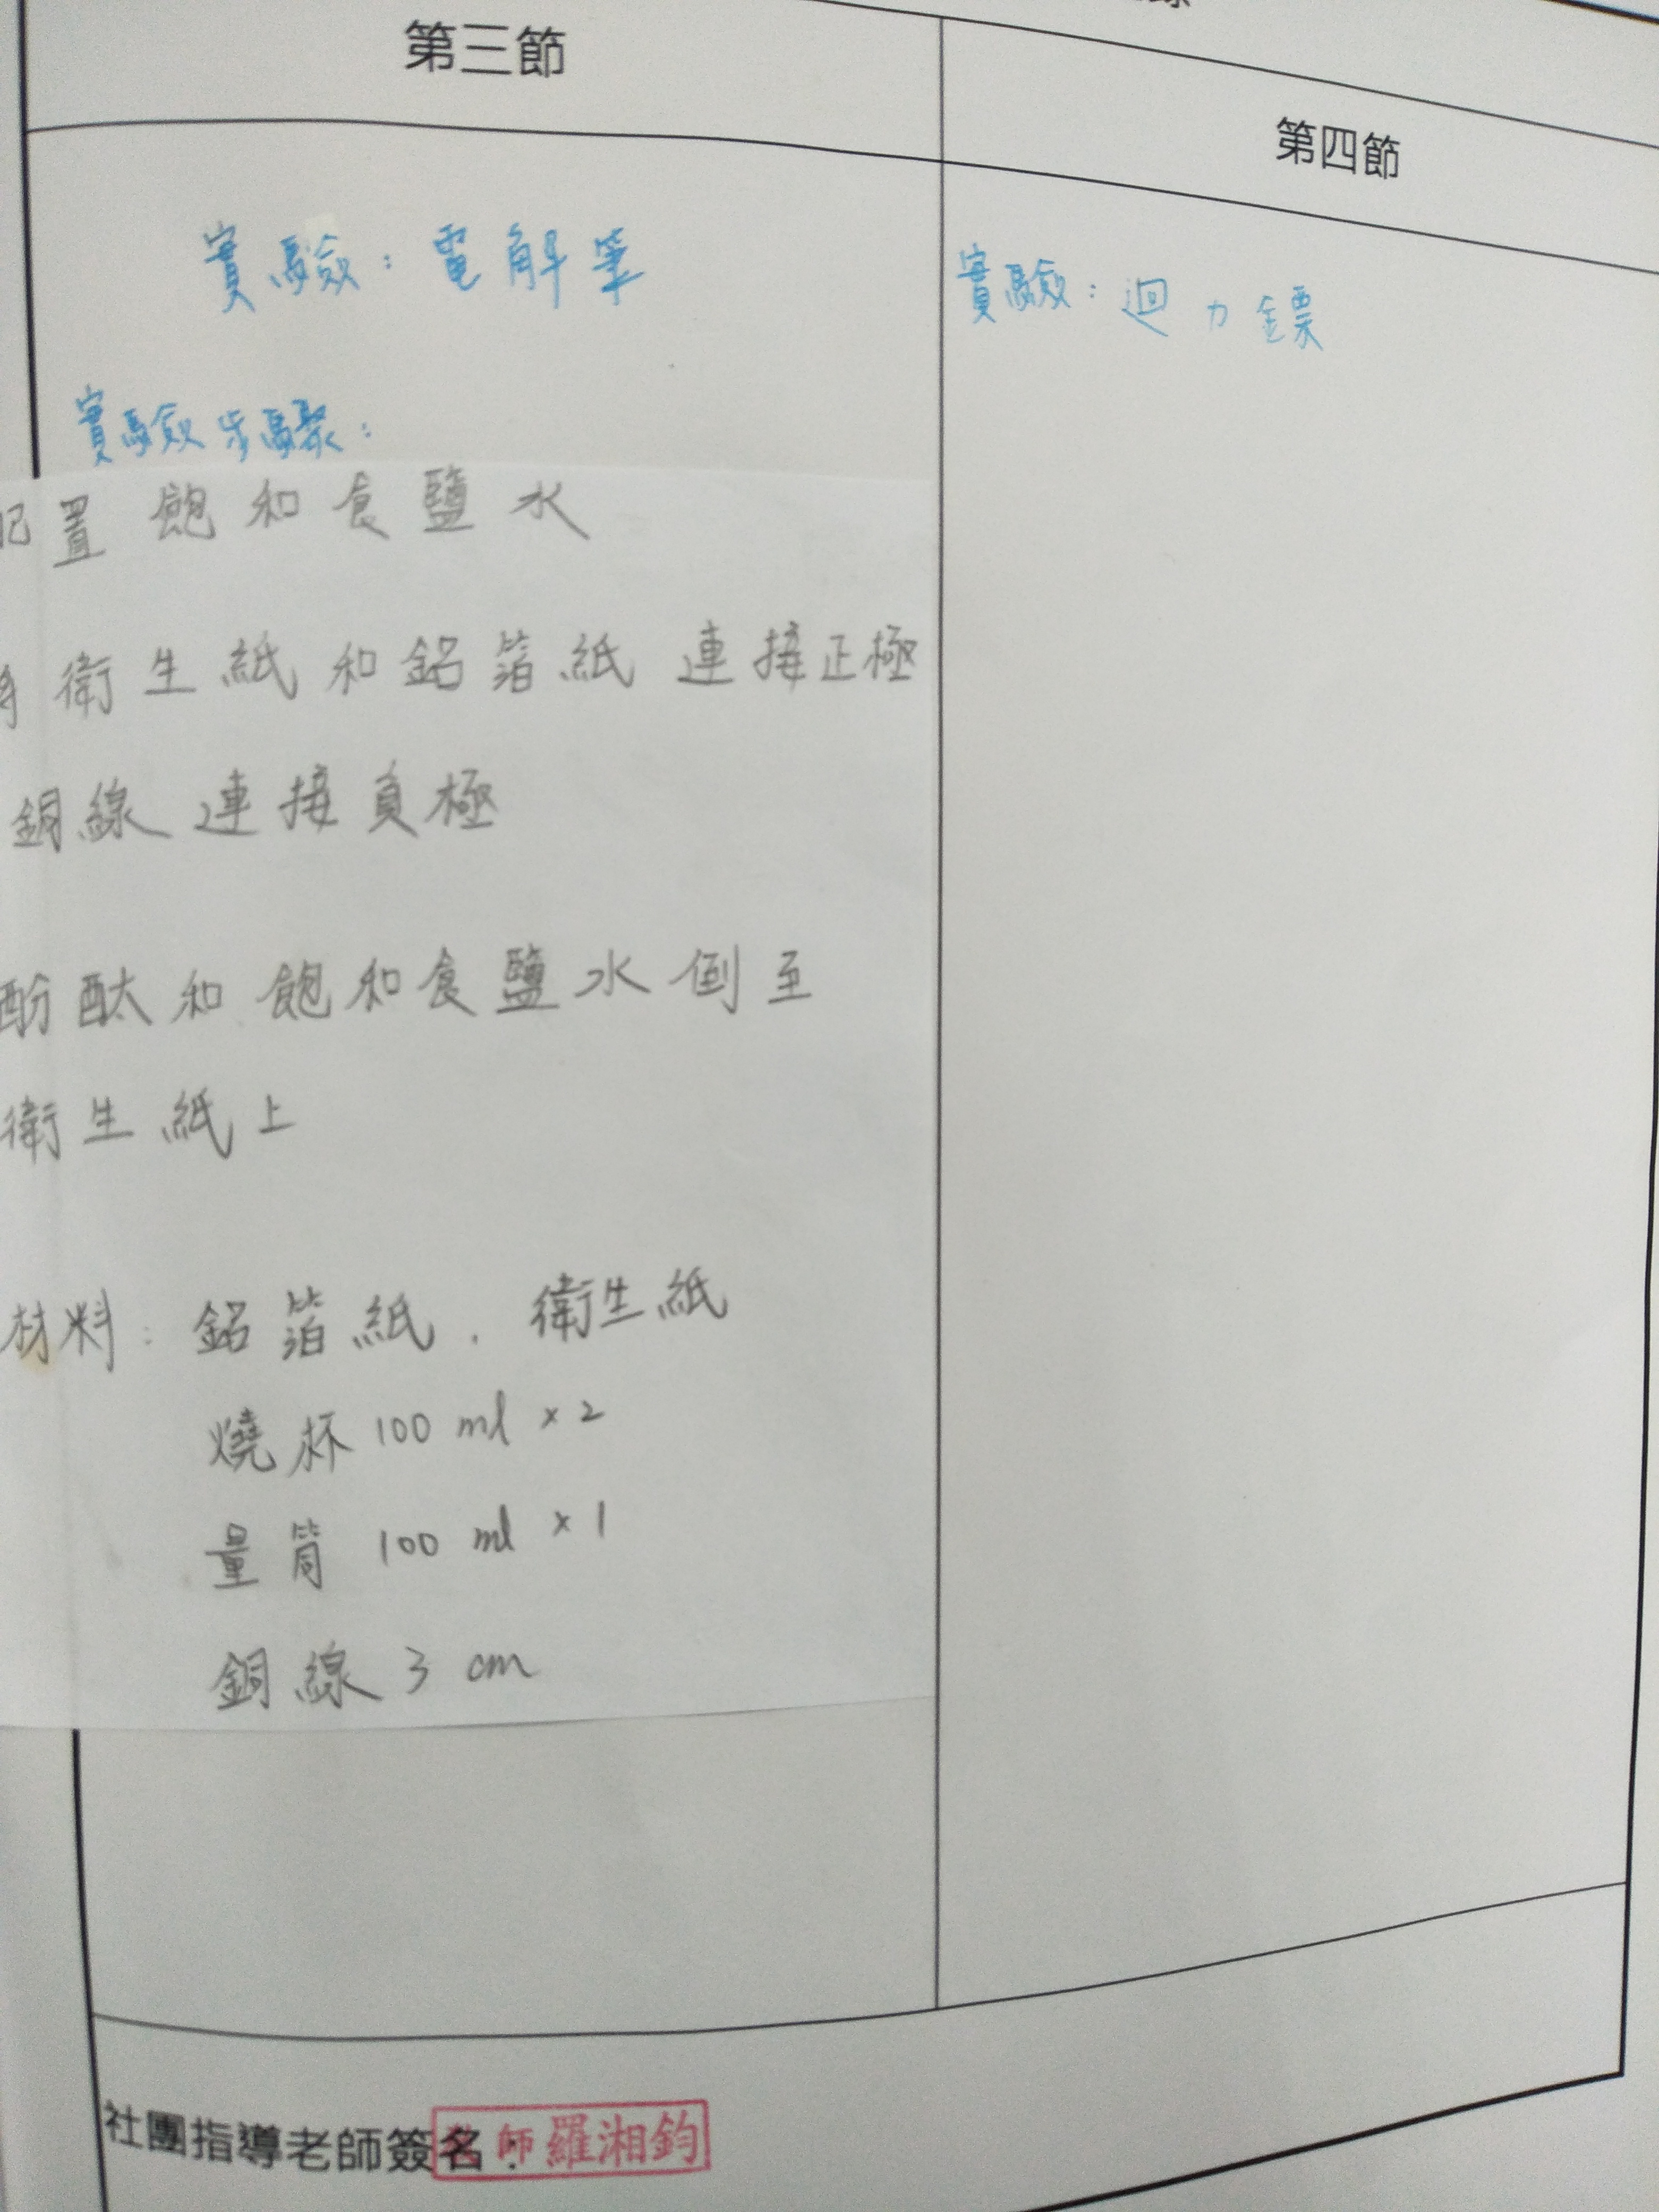 第三節
實驗：電解筆
實驗步驟：
配置飽和食鹽水
衛生紙和鋁箔紙連接正極
銅線連接負極
酚酞和飽和食鹽水倒至
衛生紙上
材料：鋁箔紙、衛生紙
燒杯 100 ml × 2
量筒 100 ml × 1
銅線 3 cm
第四節
實驗：迴力鏢
社團指導老師簽名：
教師羅湘鈞